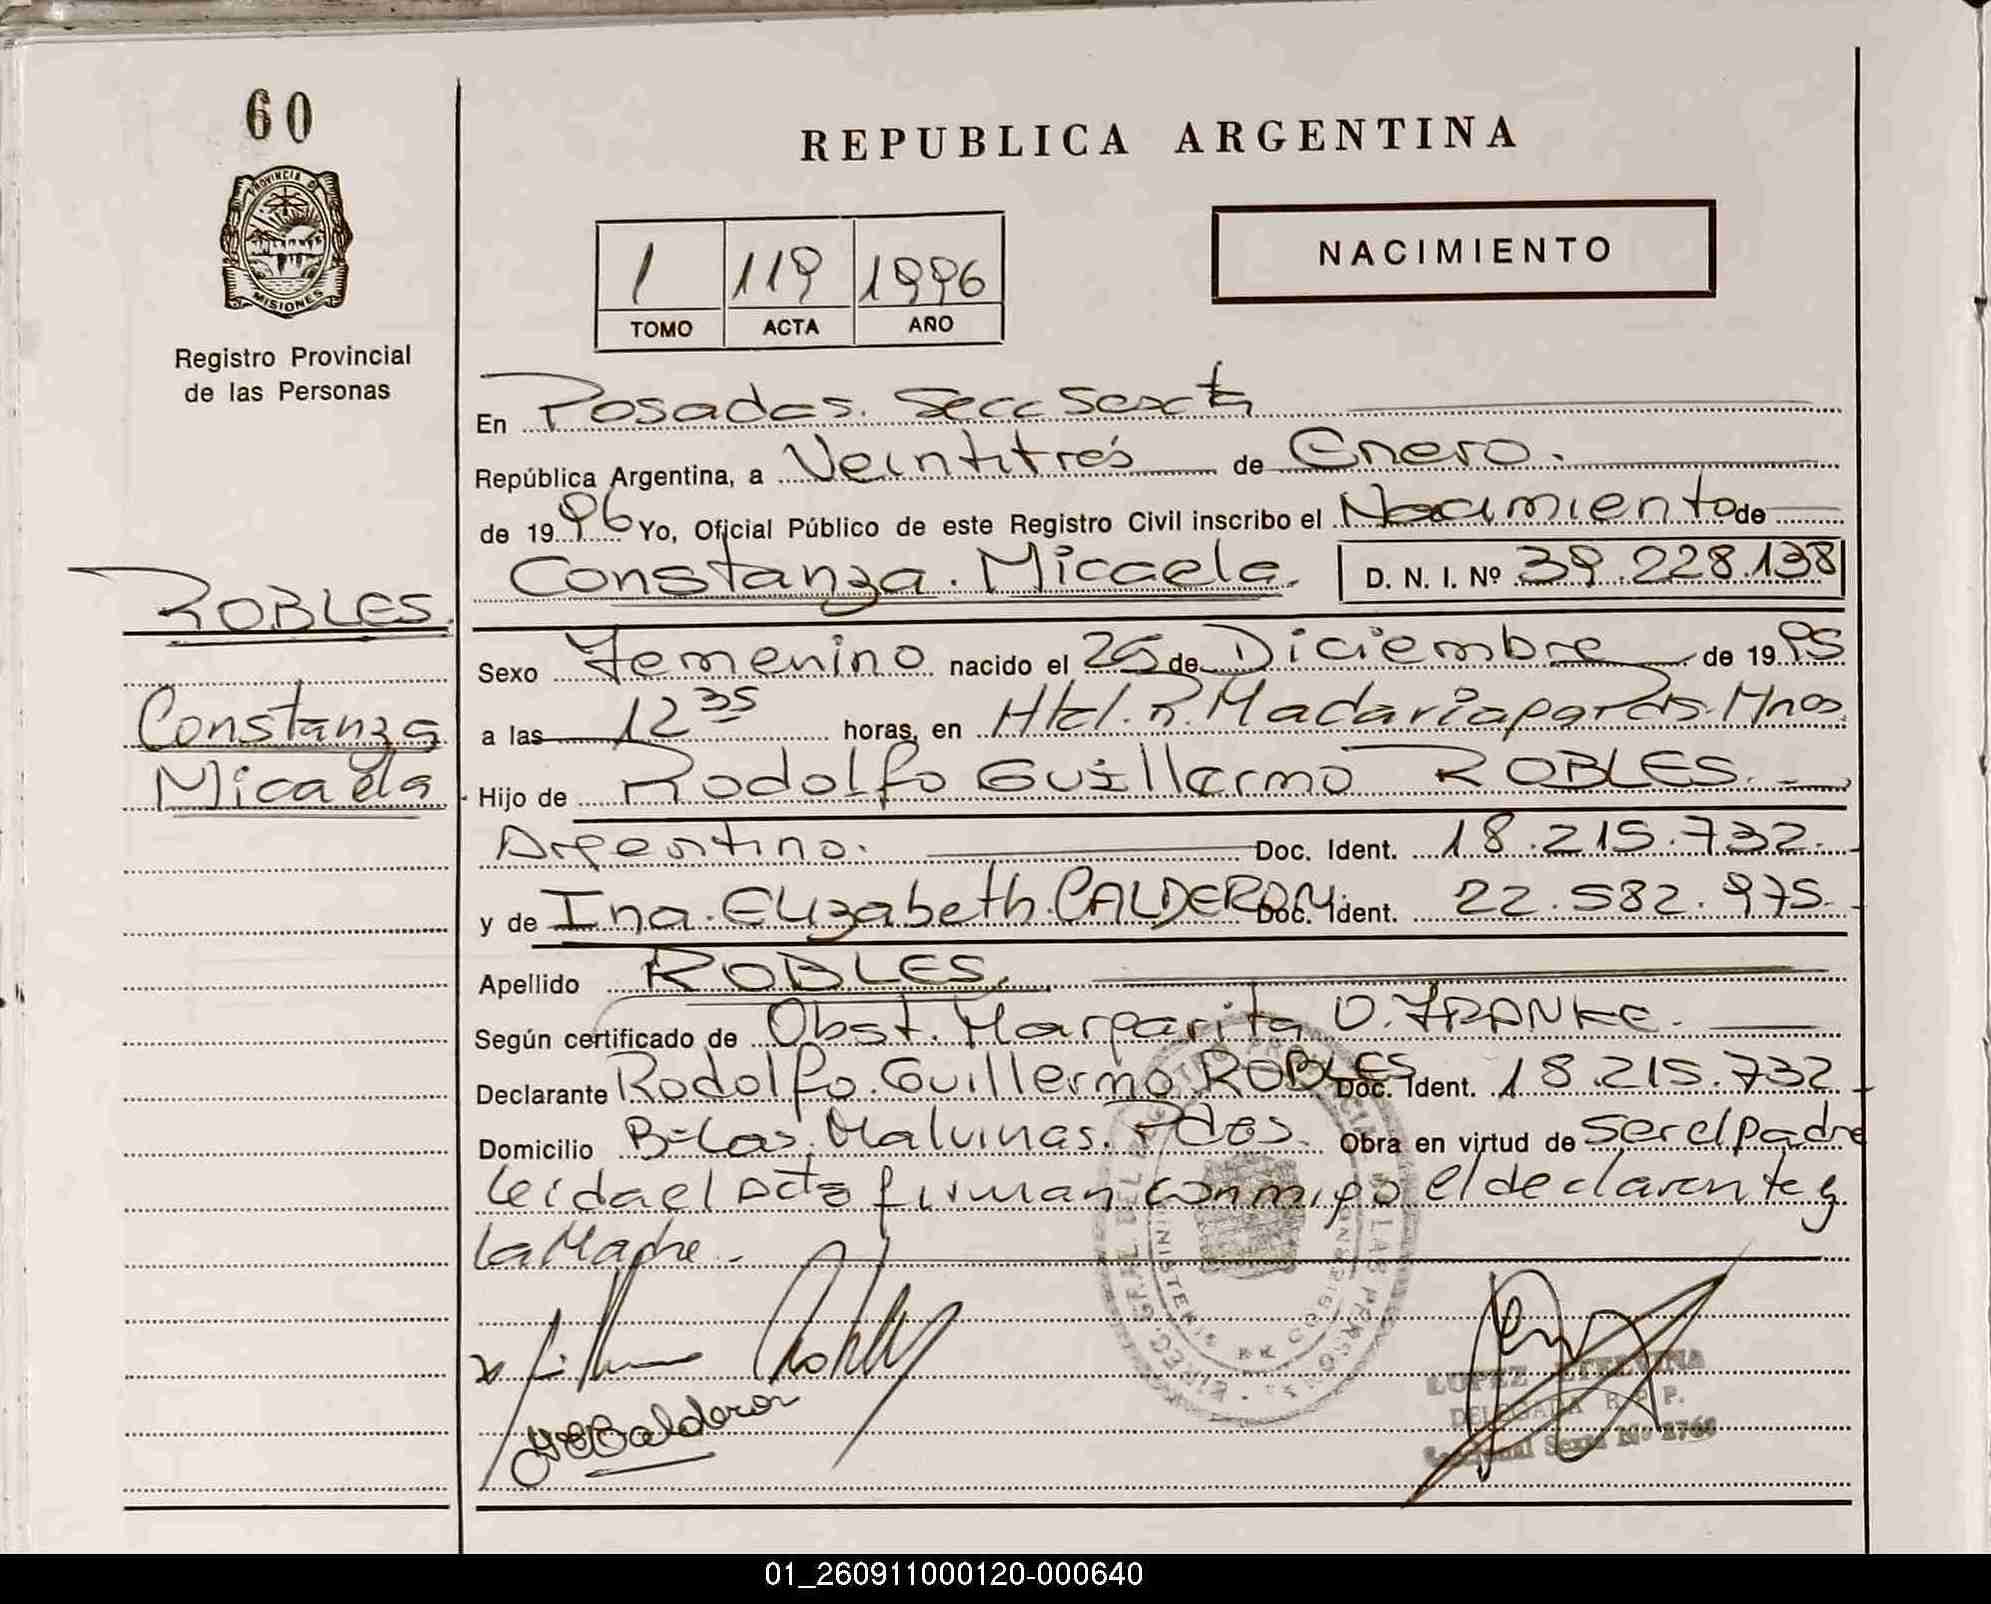 60
PROVINCIA D
MISIONES
Registro Provincial
de las Personas
REPUBLICA ARGENTINA
NACIMIENTO
1 119 1996
TOMO ACTA AÑO
En Posadas. Secc Sexta
República Argentina, a Veintitrés de Enero.
de 1996 Yo, Oficial Público de este Registro Civil inscribo el Nacimiento de
Constanza. Micaela. D. N. I. Nº 39.228.138
ROBLES
Constanza
Micaela
Sexo Femenino nacido el 26 de Diciembre de 1995
a las 12 35 horas, en Htal. R. Madariaga Pdas. Mnes
Hijo de Rodolfo Guillermo ROBLES.
Argentino. Doc. Ident. 18.215.732.
y de Ina. Elizabeth CALDERON Doc. Ident. 22.582.975.
Apellido ROBLES.
Según certificado de Obst. Margarita O. FRANKE.
Declarante Rodolfo. Guillermo ROBLES Doc. Ident. 18.215.732
Domicilio Bº Las. Malvinas. Pdas. Obra en virtud de ser el padre
leida el acta firman conmigo el declarante y
la Madre.
LOPEZ ETELVINA
DELEGADA R. P.
Seccional Sexta
01_260911000120-000640